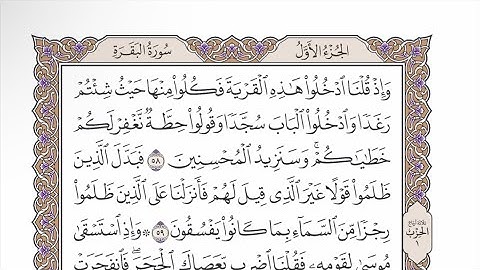 الجُزْءُ الأَوَّلُ
سُورَةُ البَقَرَةِ
وَإِذْ قُلْنَا ٱدْخُلُوا۟ هَـٰذِهِ ٱلْقَرْيَةَ فَكُلُوا۟ مِنْهَا حَيْثُ شِئْتُمْ
رَغَدًا وَٱدْخُلُوا۟ ٱلْبَابَ سُجَّدًا وَقُولُوا۟ حِطَّةٌ نَّغْفِرْ لَكُمْ
خَطَـٰيَـٰكُمْ ۚ وَسَنَزِيدُ ٱلْمُحْسِنِينَ ٥٨ فَبَدَّلَ ٱلَّذِينَ
ظَلَمُوا۟ قَوْلًا غَيْرَ ٱلَّذِى قِيلَ لَهُمْ فَأَنزَلْنَا عَلَى ٱلَّذِينَ ظَلَمُوا۟
رِجْزًا مِّنَ ٱلسَّمَآءِ بِمَا كَانُوا۟ يَفْسُقُونَ ٥٩ ۞ وَإِذِ ٱسْتَسْقَىٰ
مُوسَىٰ لِقَوْمِهِۦ فَقُلْنَا ٱضْرِب بِّعَصَاكَ ٱلْحَجَرَ ۖ فَٱنفَجَرَتْ
الحِزْبِ
١